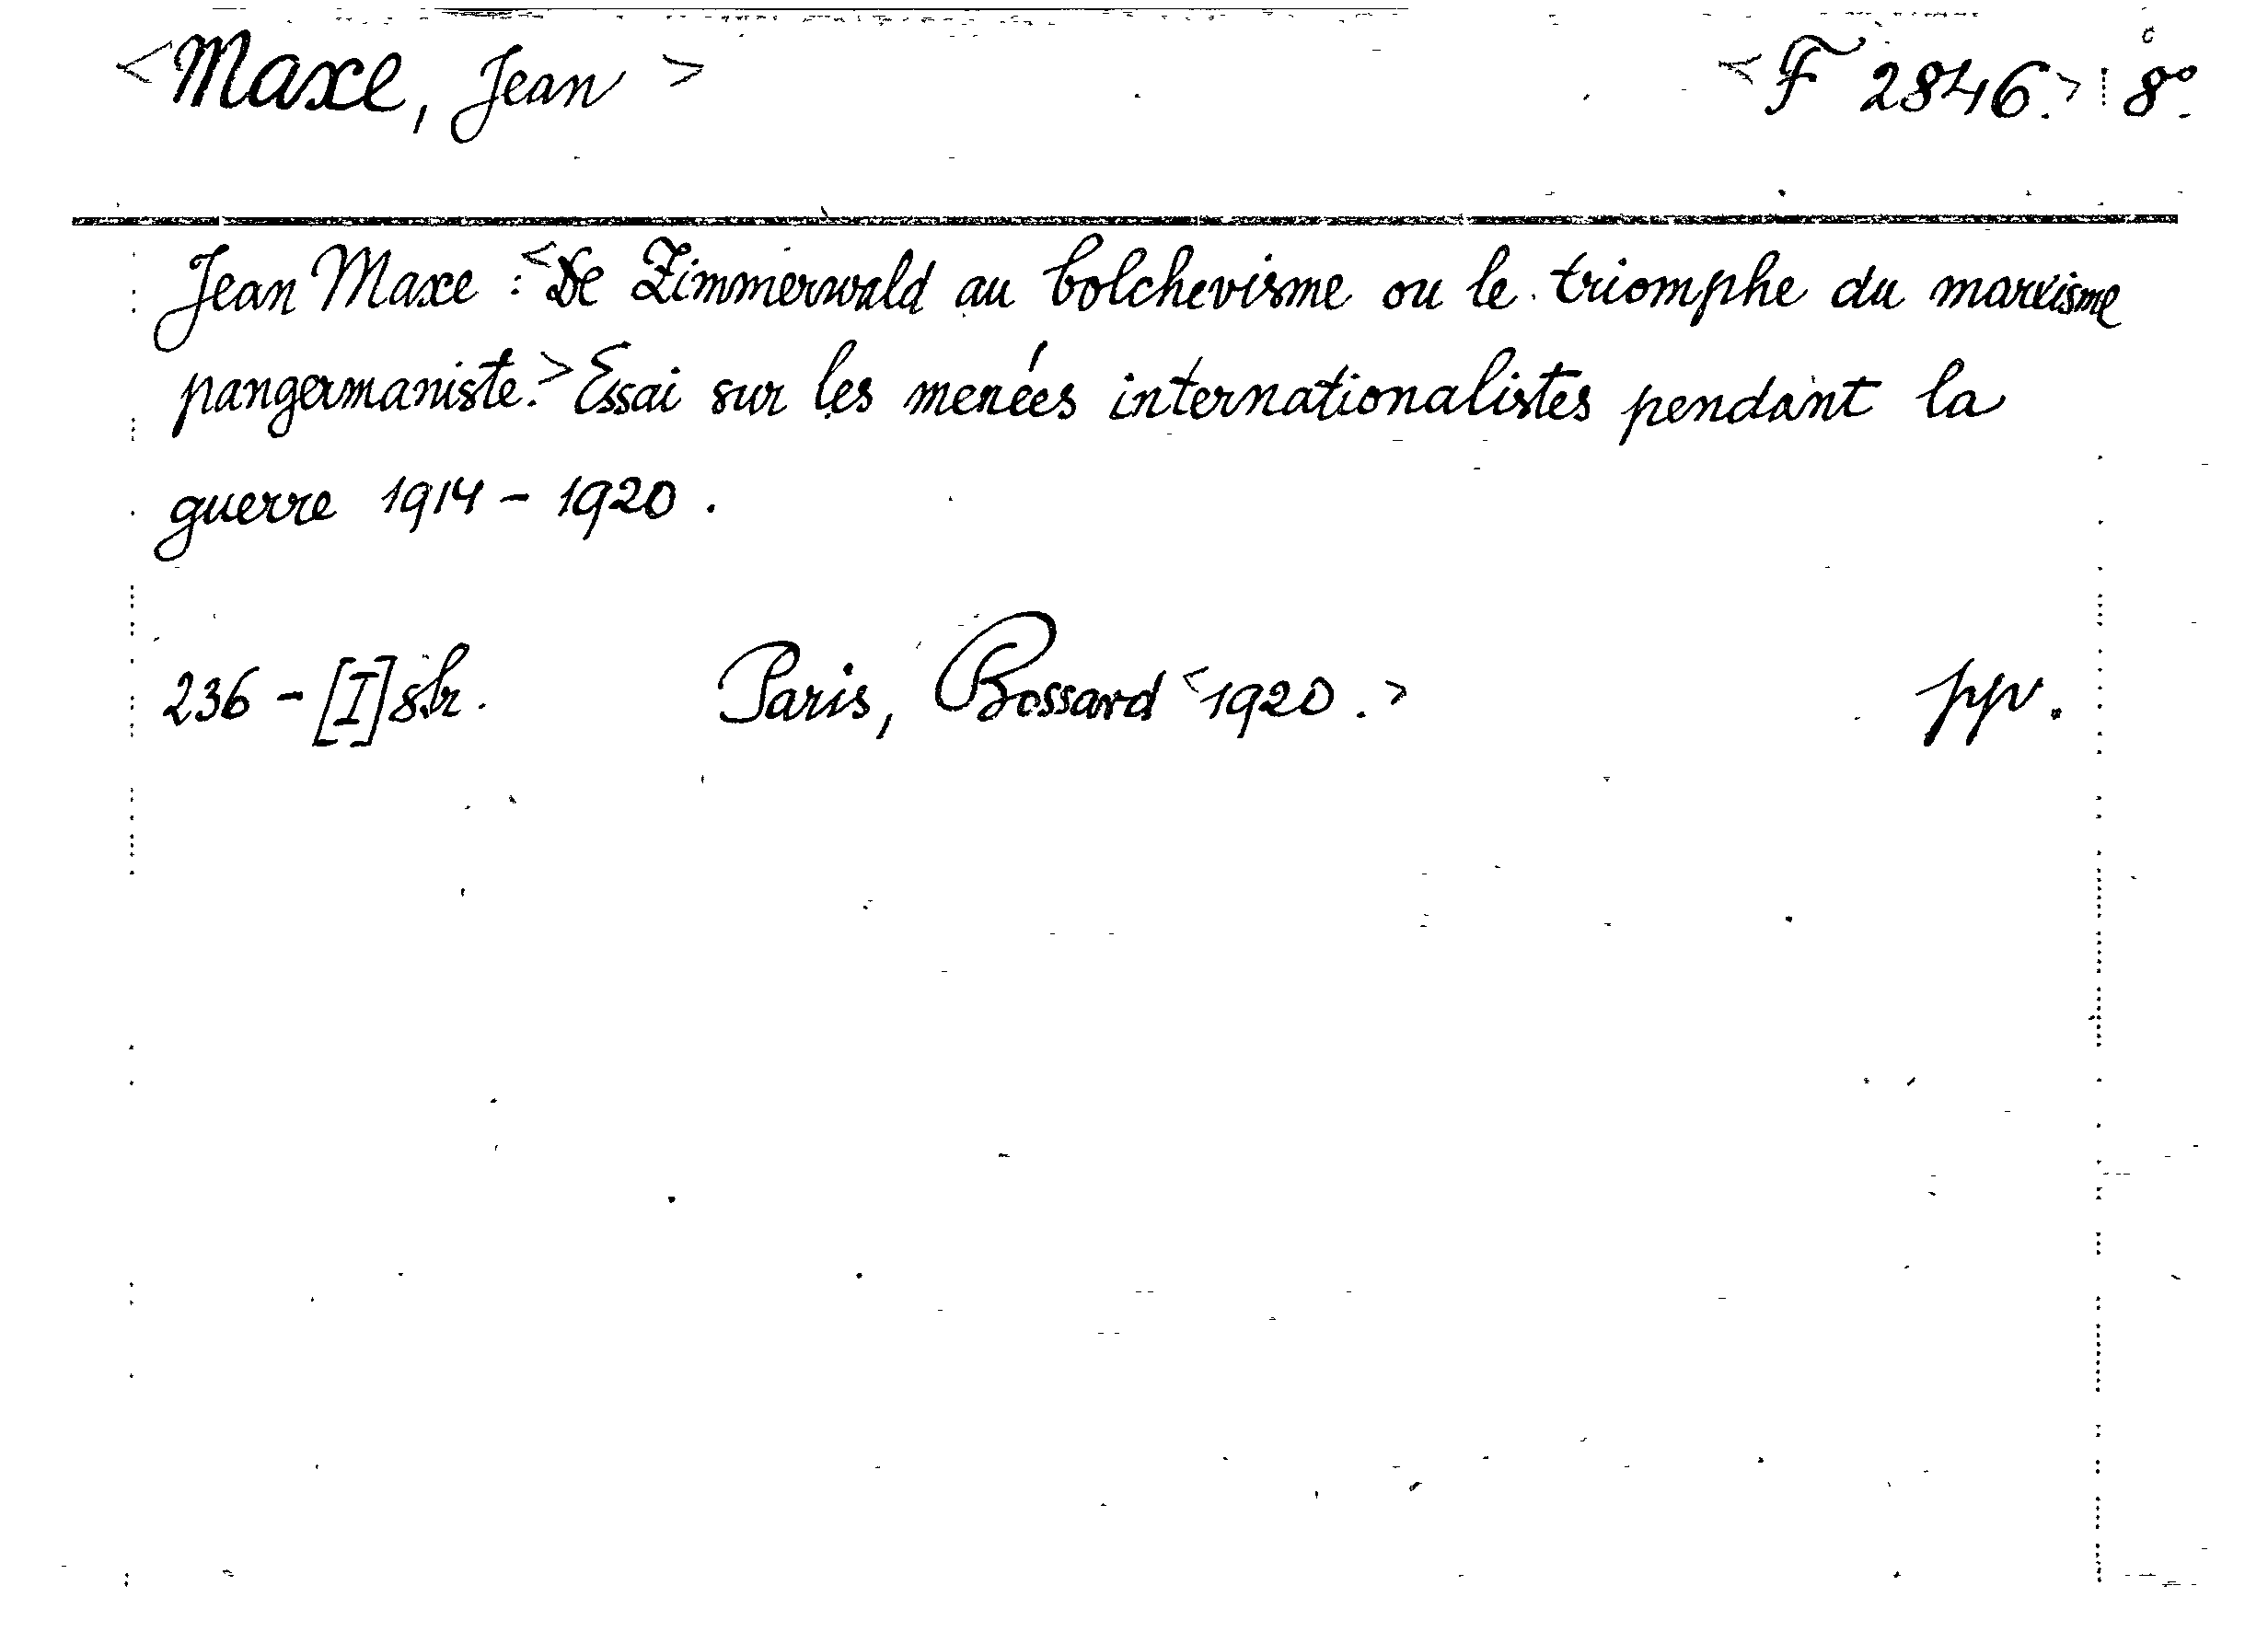 <Maxe, Jean> <F 2846.> 8°.
Jean Maxe : <De Zimmerwald au bolchevisme ou le triomphe du marxisme
pangermaniste.> Essai sur les menées internationalistes pendant la
guerre 1914 - 1920.
236 - [I] str. Paris, Bossard <1920.> ppv.